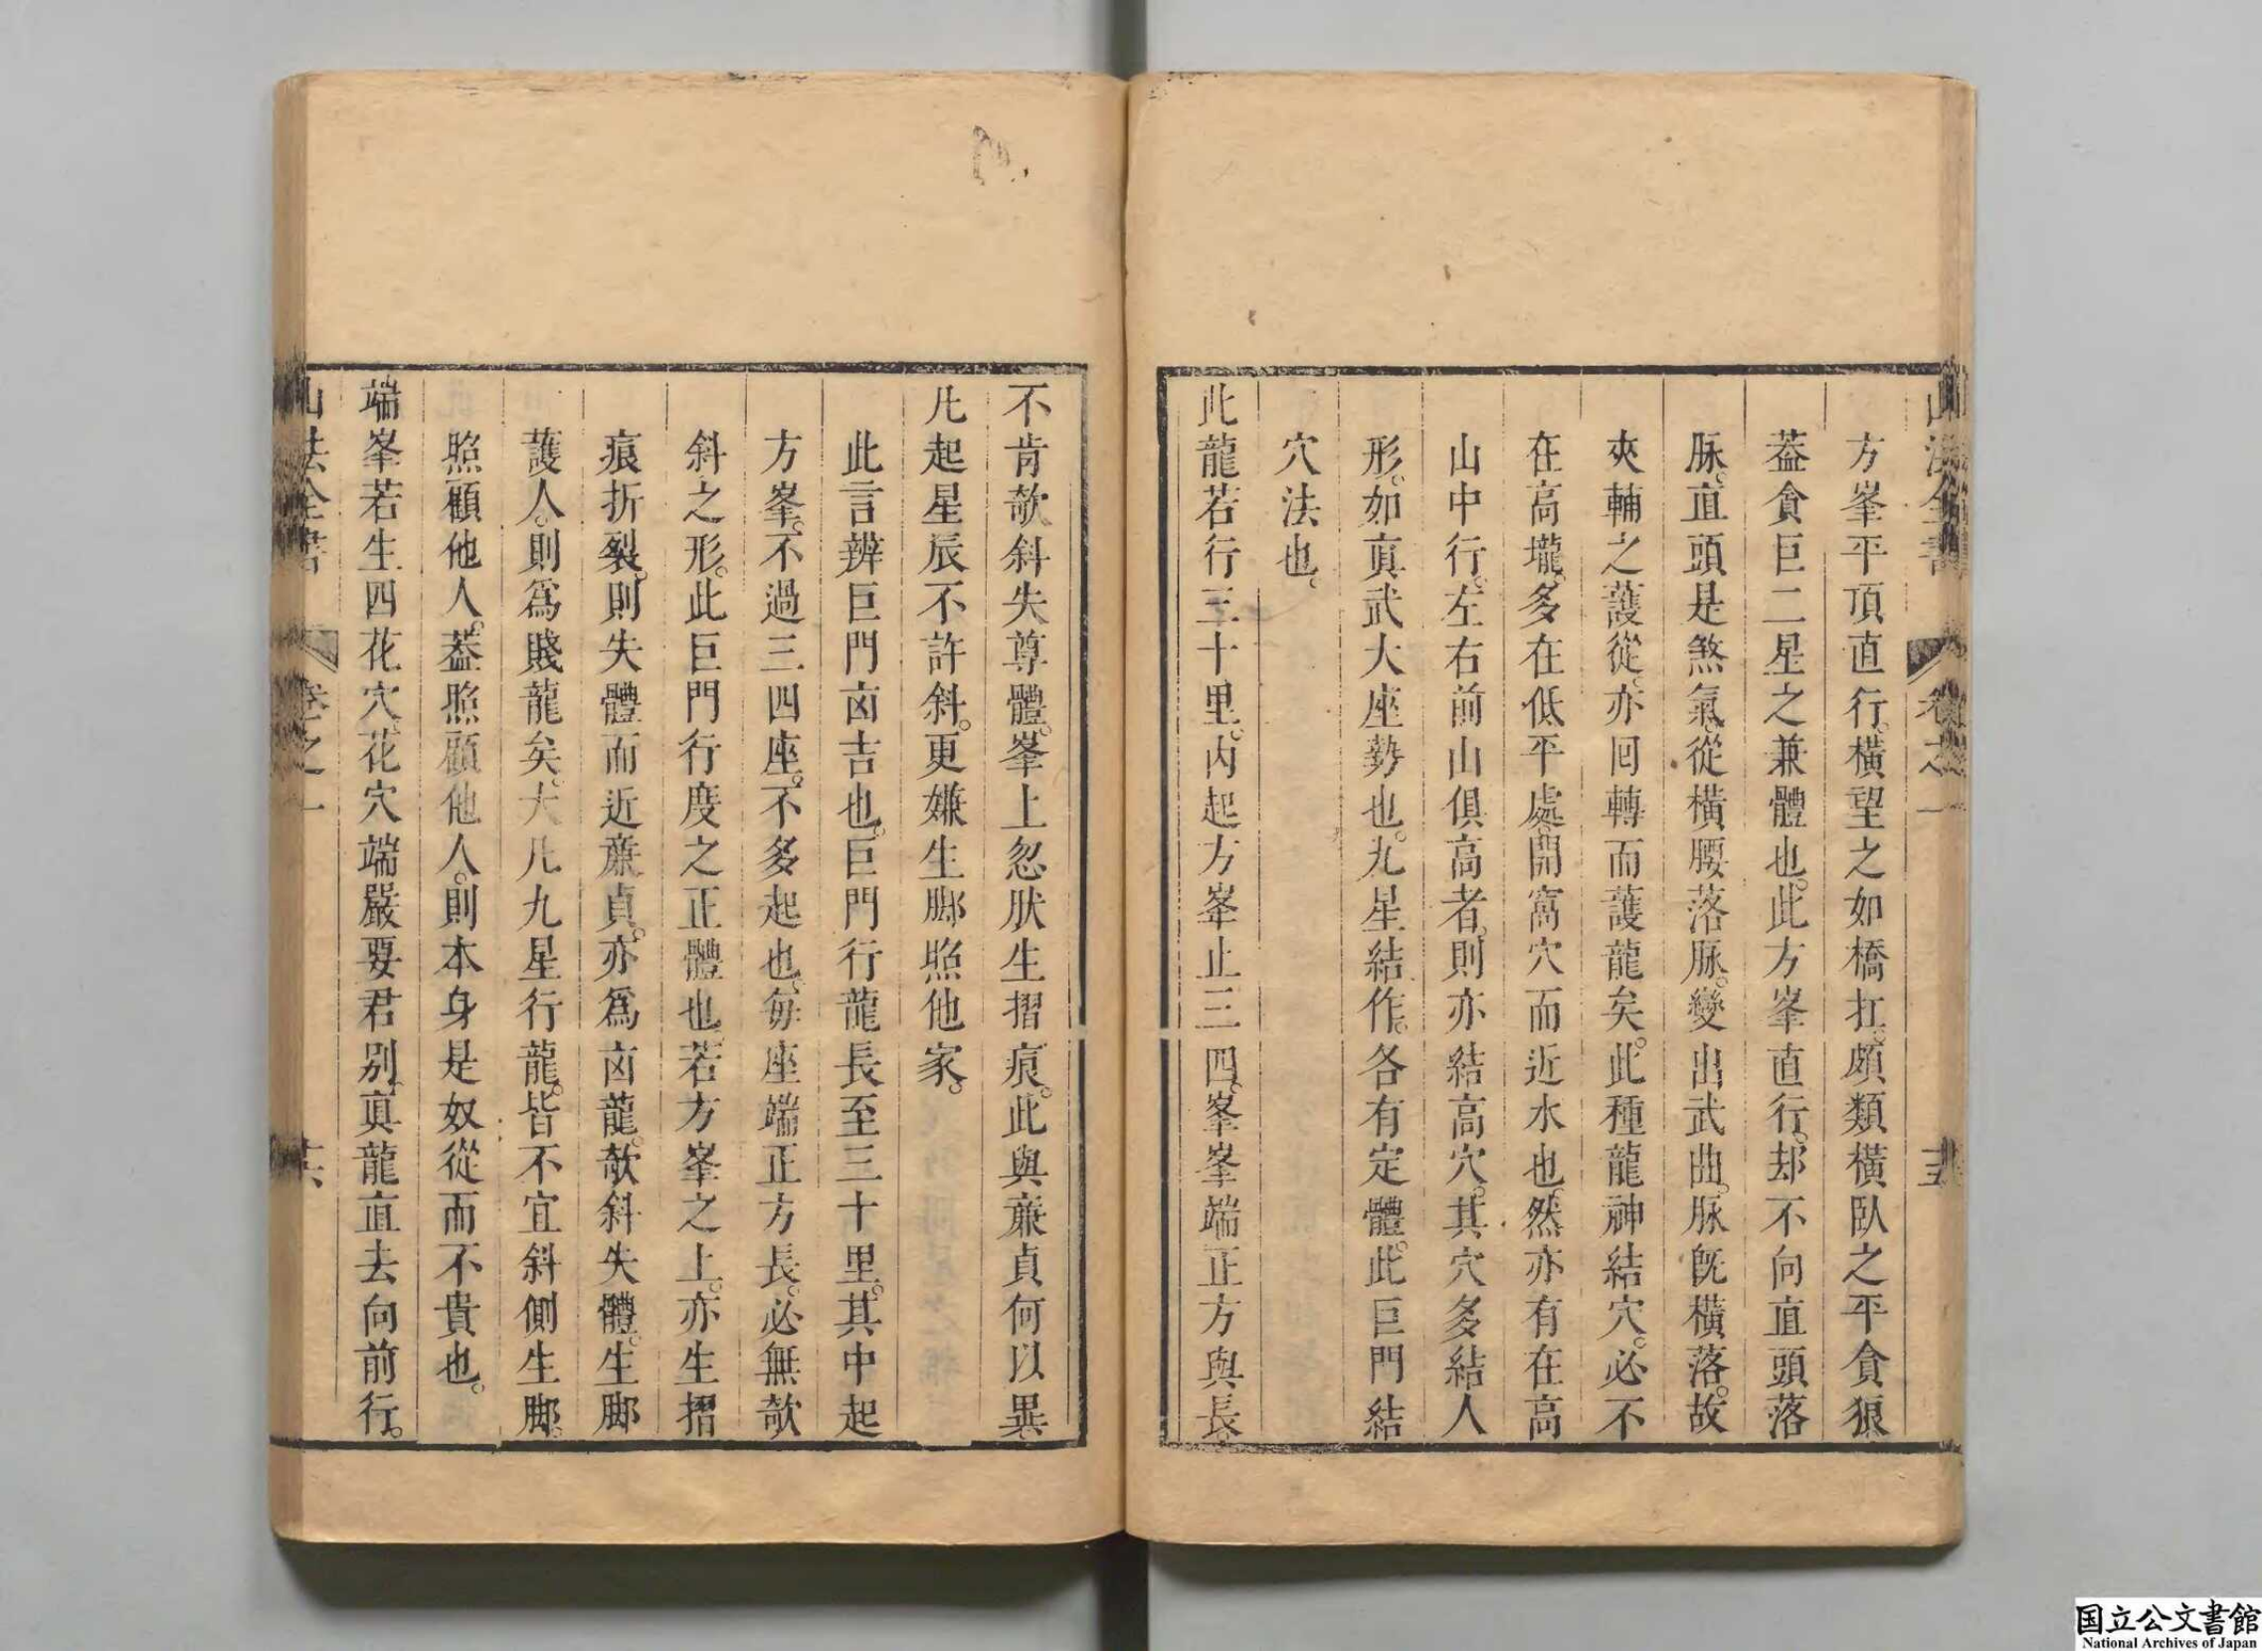 山法全書 卷之一 十五
方峯平頂直行。橫望之如橋扛。頗類橫臥之平貪狼
葢貪巨二星之兼體也。此方峯直行。却不向直頭落
脉。直頭是煞氣。從橫腰落脉。變出武曲。脉旣橫落。故
夾輔之護從。亦回轉而護龍矣。此種龍神結穴。必不
在高壠。多在低平處。開窩穴而近水也。然亦有在高
山中行。左右前山俱高者。則亦結高穴。其穴多結人
形。如眞武大座勢也。九星結作。各有定體。此巨門結
穴法也。
此龍若行三十里。內起方峯止三四。峯峯端正方與長。
不肯欹斜失尊體。峯上忽肰生摺痕。此與亷貞何以異
凡起星辰不許斜。更嫌生脚照他家。
此言辨巨門凶吉也。巨門行龍長至三十里。其中起
方峯。不過三四座。不多起也。每座端正方長。必無欹
斜之形。此巨門行度之正體也。若方峯之上。亦生摺
痕折裂。則失體而近亷貞。亦爲凶龍。欹斜失體。生脚
護人。則爲賤龍矣。大凡九星行龍。皆不宜斜側生脚。
照顧他人。葢照顧他人。則本身是奴從而不貴也。
端峯若生四花穴。花穴端嚴要君别。眞龍直去向前行。
山法全書 卷之一 十六
国立公文書館
National Archives of Japan